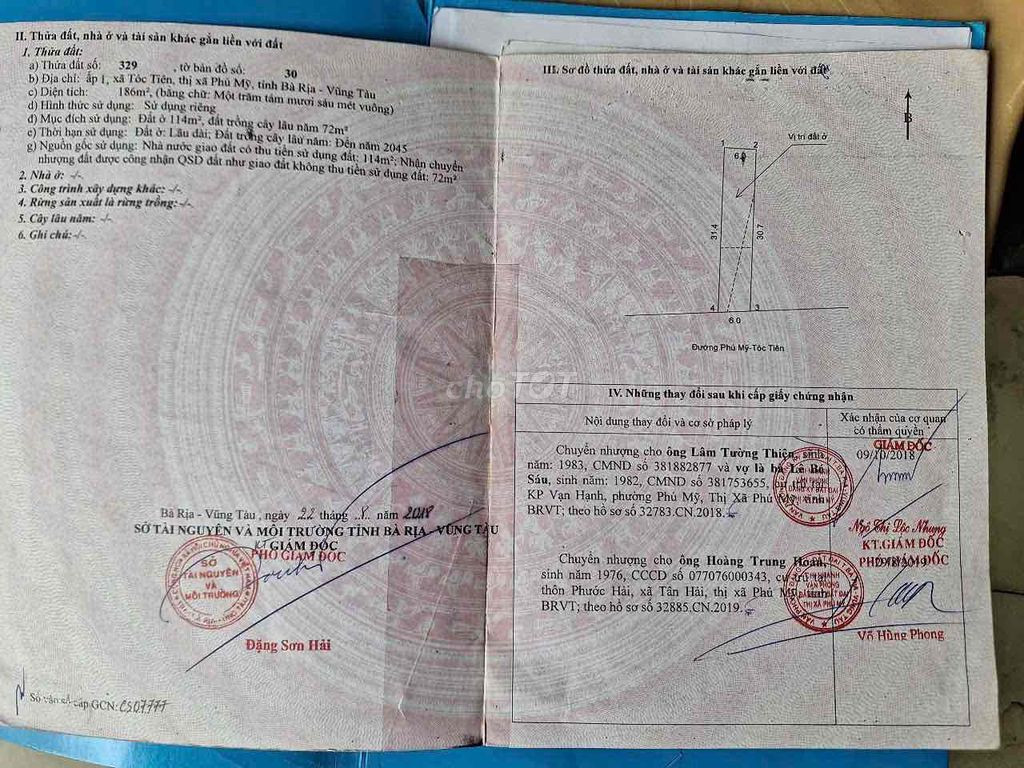 II. Thửa đất, nhà ở và tài sản khác gắn liền với đất
1. Thửa đất:
a) Thửa đất số: 329 , tờ bản đồ số: 30
b) Địa chỉ: ấp 1, xã Tóc Tiên, thị xã Phú Mỹ, tỉnh Bà Rịa - Vũng Tàu
c) Diện tích: 186m², (bằng chữ: Một trăm tám mươi sáu mét vuông)
d) Hình thức sử dụng: Sử dụng riêng
đ) Mục đích sử dụng: Đất ở 114m², đất trồng cây lâu năm 72m²
e) Thời hạn sử dụng: Đất ở: Lâu dài; Đất trồng cây lâu năm: Đến năm 2045
g) Nguồn gốc sử dụng: Nhà nước giao đất có thu tiền sử dụng đất: 114m²; Nhận chuyển
nhượng đất được công nhận QSD đất như giao đất không thu tiền sử dụng đất: 72m²
2. Nhà ở: -/-
3. Công trình xây dựng khác: -/-
4. Rừng sản xuất là rừng trồng: -/-
5. Cây lâu năm: -/-
6. Ghi chú: -/-
Bà Rịa - Vũng Tàu , ngày 22 tháng 8 năm 2018
SỞ TÀI NGUYÊN VÀ MÔI TRƯỜNG TỈNH BÀ RỊA - VŨNG TÀU
KT GIÁM ĐỐC
PHÓ GIÁM ĐỐC
SỞ
TÀI NGUYÊN
VÀ
MÔI TRƯỜNG
Đặng Sơn Hải
Số vào sổ cấp GCN: CS07777
III. Sơ đồ thửa đất, nhà ở và tài sản khác gắn liền với đất
B
Vị trí đất ở
1 2
6.0
31.4 30.7
4 3
6.0
Đường Phú Mỹ-Tóc Tiên
chợTỐT
IV. Những thay đổi sau khi cấp giấy chứng nhận
Nội dung thay đổi và cơ sở pháp lý
Xác nhận của cơ quan
có thẩm quyền
Chuyển nhượng cho ông Lâm Tường Thiện, sinh
năm: 1983, CMND số 381882877 và vợ là bà Lê Bé
Sáu, sinh năm: 1982, CMND số 381753655, cư trú tại
KP Vạn Hạnh, phường Phú Mỹ, Thị Xã Phú Mỹ, tỉnh
BRVT; theo hồ sơ số 32783.CN.2018.
GIÁM ĐỐC
09/10/2018
Ngô Thị Lộc Nhung
Chuyển nhượng cho ông Hoàng Trung Hoan,
sinh năm 1976, CCCD số 077076000343, cư trú tại
thôn Phước Hải, xã Tân Hải, thị xã Phú Mỹ, tỉnh
BRVT; theo hồ sơ số 32885.CN.2019.
KT.GIÁM ĐỐC
PHÓ GIÁM ĐỐC
Võ Hùng Phong